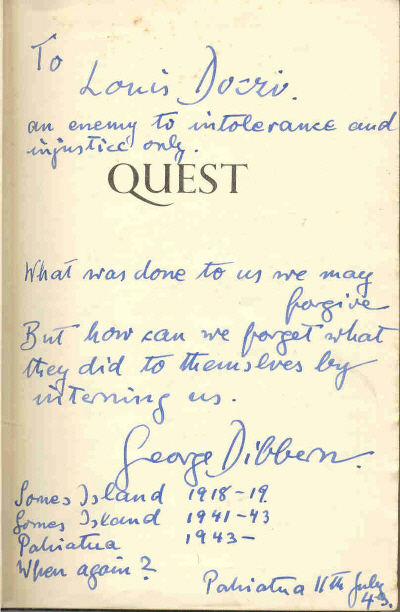 To
Louis Doczio.
an enemy to intolerance and
injustice only.
QUEST
What was done to us we may
forgive
But how can we forget what
they did to themselves by
interning us.
George Dibbern.
Somes Island 1918-19
Somes Island 1941-43
Pahiatua 1943-
When again?
Pahiatua 11th July
43.